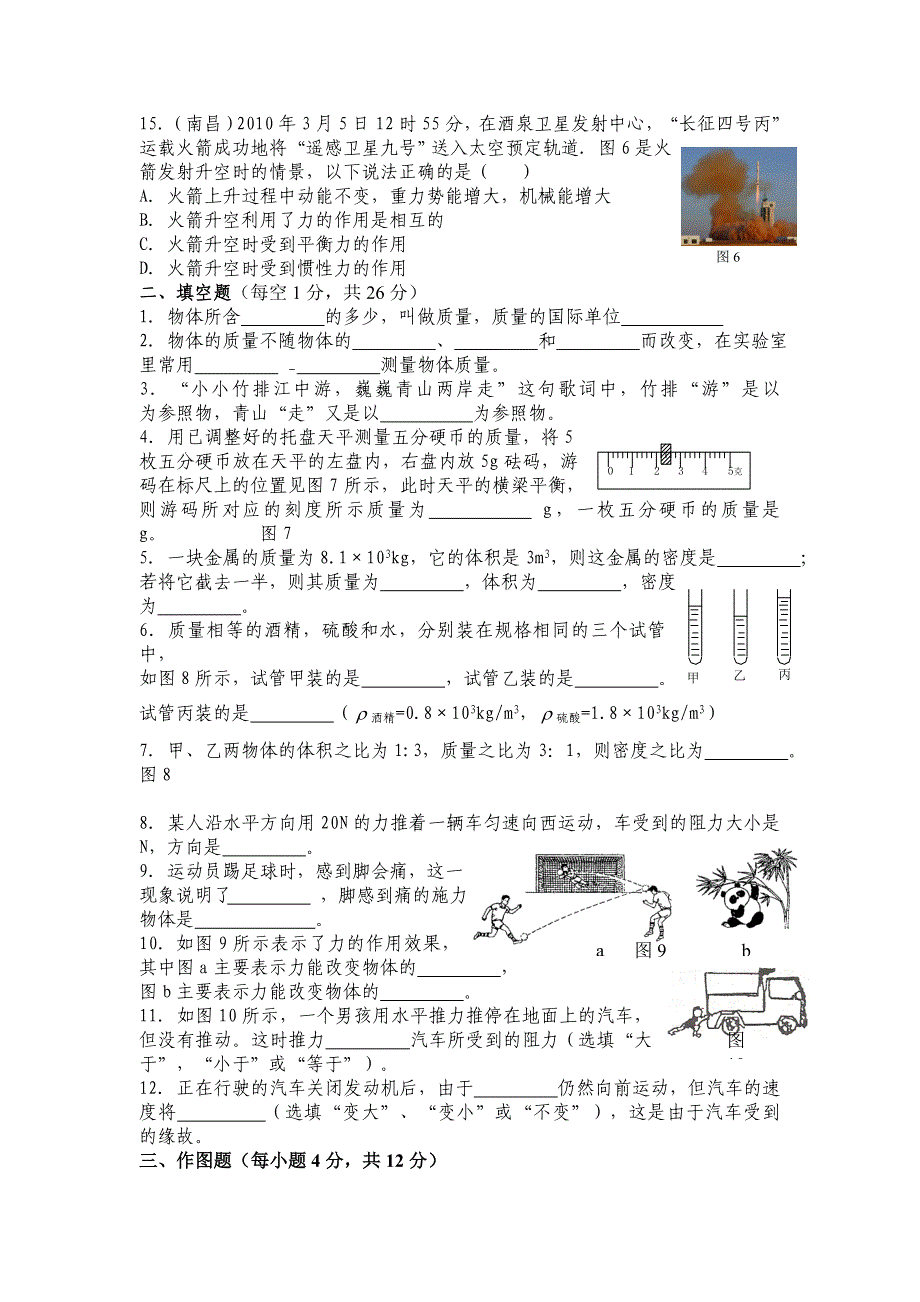 15.(南昌)2010年3月5日12时55分,在酒泉卫星发射中心,“长征四号丙”
运载火箭成功地将“遥感卫星九号”送入太空预定轨道.图6是火
箭发射升空时的情景,以下说法正确的是(  )
A. 火箭上升过程中动能不变,重力势能增大,机械能增大
B. 火箭升空利用了力的作用是相互的
C. 火箭升空时受到平衡力的作用
D. 火箭升空时受到惯性力的作用
图6
二、填空题(每空1分,共26分)
1. 物体所含________的多少,叫做质量,质量的国际单位________
2. 物体的质量不随物体的________、________和________而改变,在实验室
里常用________ _________测量物体质量。
3. “小小竹排江中游,巍巍青山两岸走”这句歌词中,竹排“游”是以
为参照物,青山“走”又是以________为参照物。
4. 用已调整好的托盘天平测量五分硬币的质量,将5
枚五分硬币放在天平的左盘内,右盘内放5g砝码,游
码在标尺上的位置见图7所示,此时天平的横梁平衡,
则游码所对应的刻度所示质量为________ g,一枚五分硬币的质量是
g。 图7
0 1 2 3 4 5克
5. 一块金属的质量为8.1×10³kg,它的体积是3m³,则这金属的密度是________;
若将它截去一半,则其质量为________,体积为________,密度
为________。
6. 质量相等的酒精,硫酸和水,分别装在规格相同的三个试管
中,
如图8所示,试管甲装的是________,试管乙装的是________。
甲 乙 丙
试管丙装的是________(ρ酒精=0.8×10³kg/m³,ρ硫酸=1.8×10³kg/m³)
7. 甲、乙两物体的体积之比为1:3,质量之比为3:1,则密度之比为________。
图8
8. 某人沿水平方向用20N的力推着一辆车匀速向西运动,车受到的阻力大小是
N,方向是________。
9. 运动员踢足球时,感到脚会痛,这一
现象说明了________ ,脚感到痛的施力
物体是________。
10. 如图9所示表示了力的作用效果,
a 图9 b
其中图a主要表示力能改变物体的________,
图b主要表示力能改变物体的________。
11. 如图10所示,一个男孩用水平推力推停在地面上的汽车,
但没有推动。这时推力________汽车所受到的阻力(选填“大
于”,“小于”或“等于”)。
图
12. 正在行驶的汽车关闭发动机后,由于________仍然向前运动,但汽车的速
度将________(选填“变大”、“变小”或“不变”),这是由于汽车受到
的缘故。
三、作图题(每小题4分,共12分)